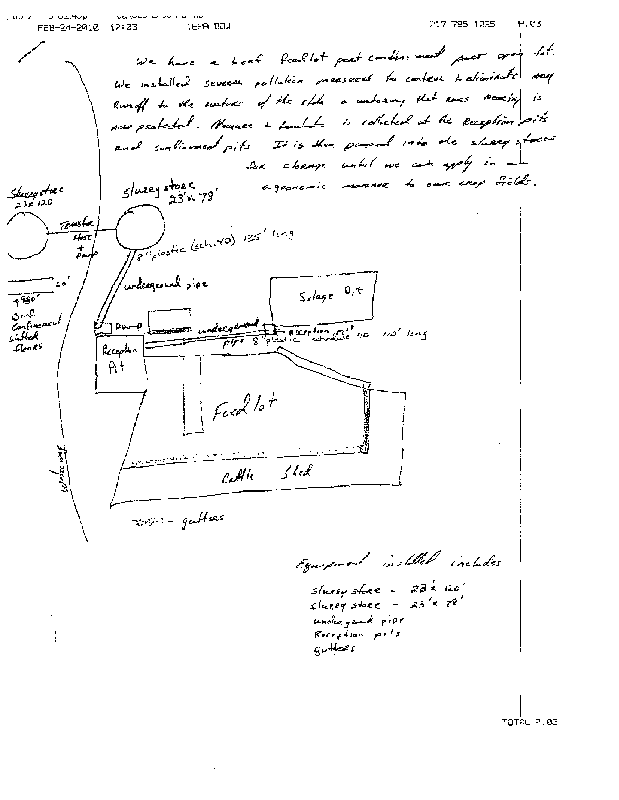 FEB-24-2010 12:23 717 705 1235 P.03
We have a beef feedlot part confinement part open lot.
We installed several pollution measures to control & eliminate any
runoff to the waters of the state a waterway that runs nearby is
now protected. Manure & is collected at the Reception pits
and confinement pits. It is then pumped into the slurry stores
for storage until we can apply in an
agronomic manner to our crop fields.
Slurry store
23 x 120
slurry store
23'x 78'
Transfer
Hose
+
pump
8" plastic (sch.40) 135' long
underground pipe
Beef
Confinement
slatted
floors
Pump
underground
Silage Pit
Reception Pit
pipe 8" plastic schedule 40 110' long
Reception
Pit
Feed lot
Cattle Shed
Waterway
- gutters
Equipment installed includes
slurry store - 23' x 120'
slurry store - 23' x 78'
underground pipe
Reception pits
gutters
TOTAL P.03